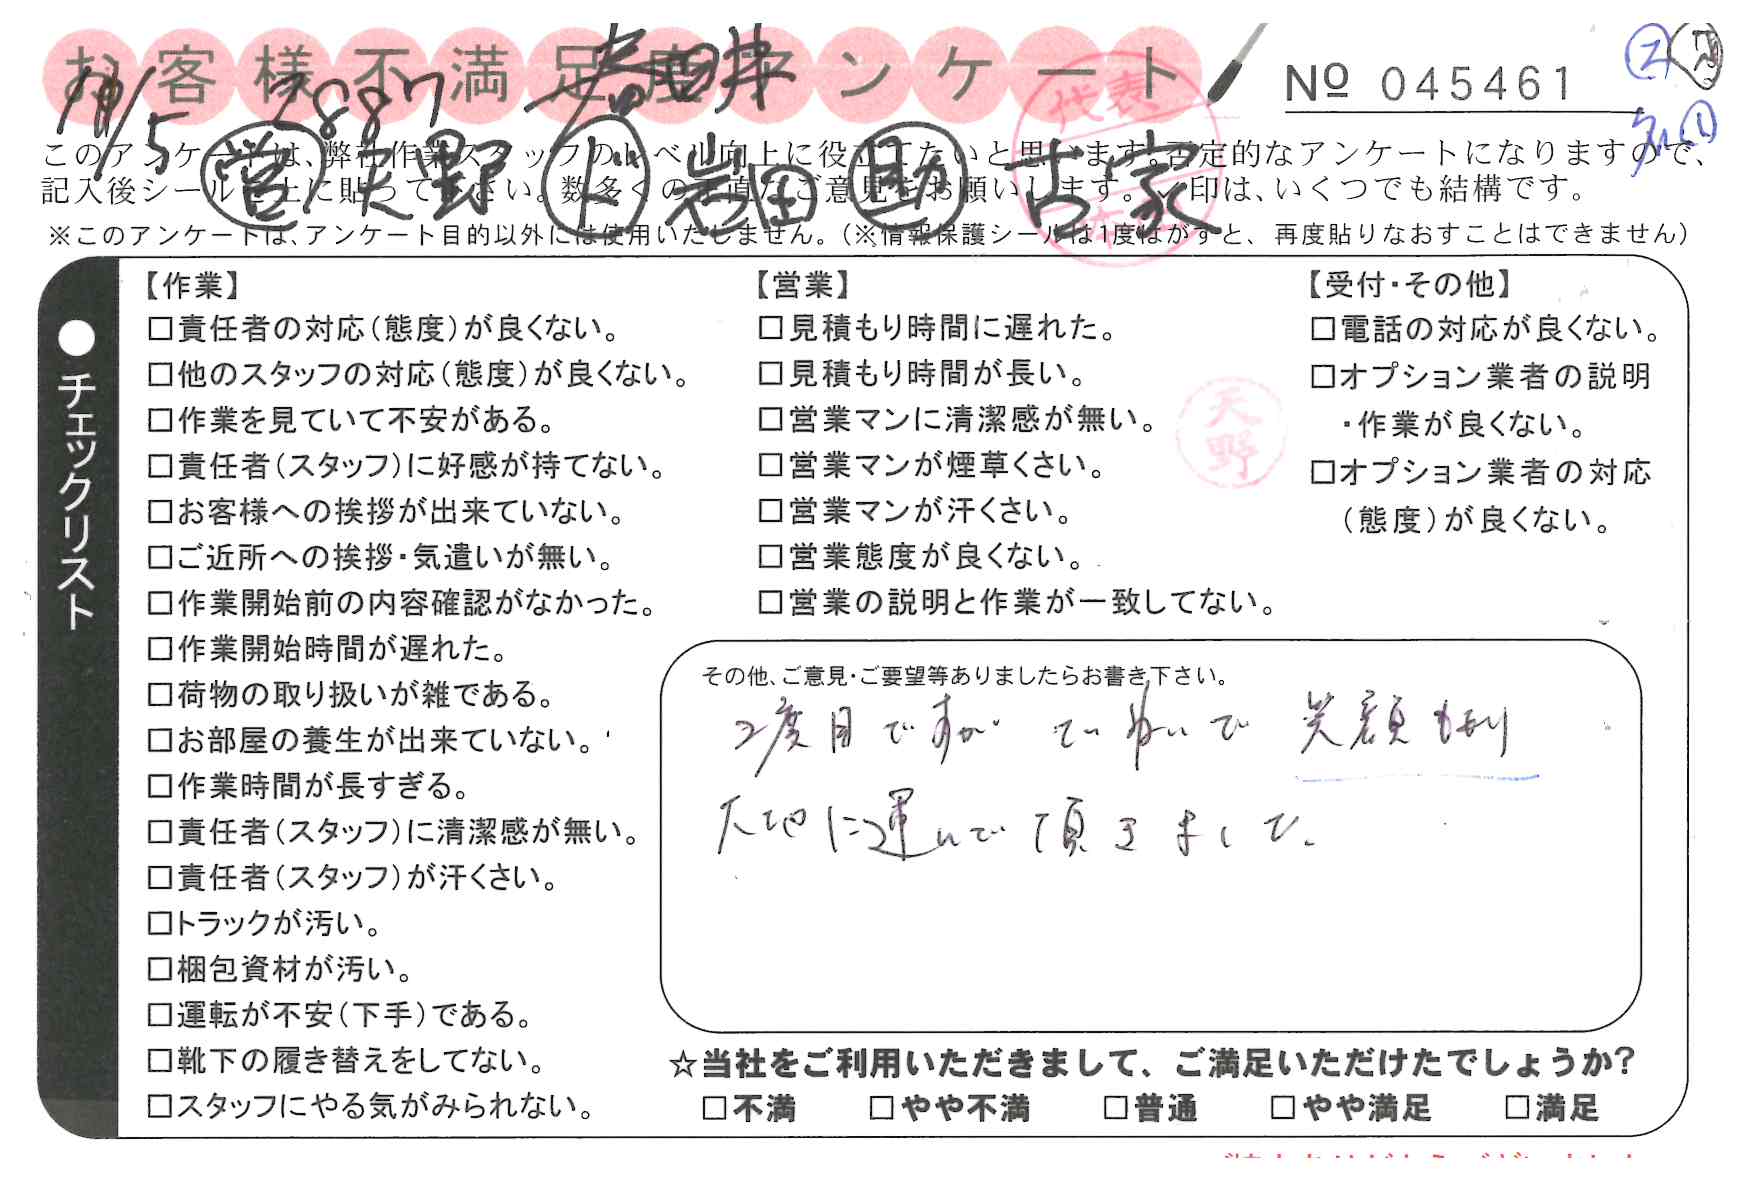 お客様不満足度アンケート
Nº 045461
11/5 2887 春日井
このアンケートは、弊社作業スタッフのレベル向上に役立てたいと思います。否定的なアンケートになりますので、
営 天野 ド 岩田 助 古家
記入後シールを上に貼って下さい。数多くの正直なご意見をお願いします。✓印は、いくつでも結構です。
※このアンケートは、アンケート目的以外には使用いたしません。（※情報保護シールは1度はがすと、再度貼りなおすことはできません）
代表
●チェックリスト
【作業】
□責任者の対応（態度）が良くない。
□他のスタッフの対応（態度）が良くない。
□作業を見ていて不安がある。
□責任者（スタッフ）に好感が持てない。
□お客様への挨拶が出来ていない。
□ご近所への挨拶・気遣いが無い。
□作業開始前の内容確認がなかった。
□作業開始時間が遅れた。
□荷物の取り扱いが雑である。
□お部屋の養生が出来ていない。
□作業時間が長すぎる。
□責任者（スタッフ）に清潔感が無い。
□責任者（スタッフ）が汗くさい。
□トラックが汚い。
□梱包資材が汚い。
□運転が不安（下手）である。
□靴下の履き替えをしてない。
□スタッフにやる気がみられない。
【営業】
□見積もり時間に遅れた。
□見積もり時間が長い。
□営業マンに清潔感が無い。
□営業マンが煙草くさい。
□営業マンが汗くさい。
□営業態度が良くない。
□営業の説明と作業が一致してない。
天野
【受付・その他】
□電話の対応が良くない。
□オプション業者の説明
・作業が良くない。
□オプション業者の対応
（態度）が良くない。
その他、ご意見・ご要望等ありましたらお書き下さい。
2度目ですが ていねいで 笑顔もあり
大地に運んで頂きました。
☆当社をご利用いただきまして、ご満足いただけたでしょうか?
□不満 □やや不満 □普通 □やや満足 □満足